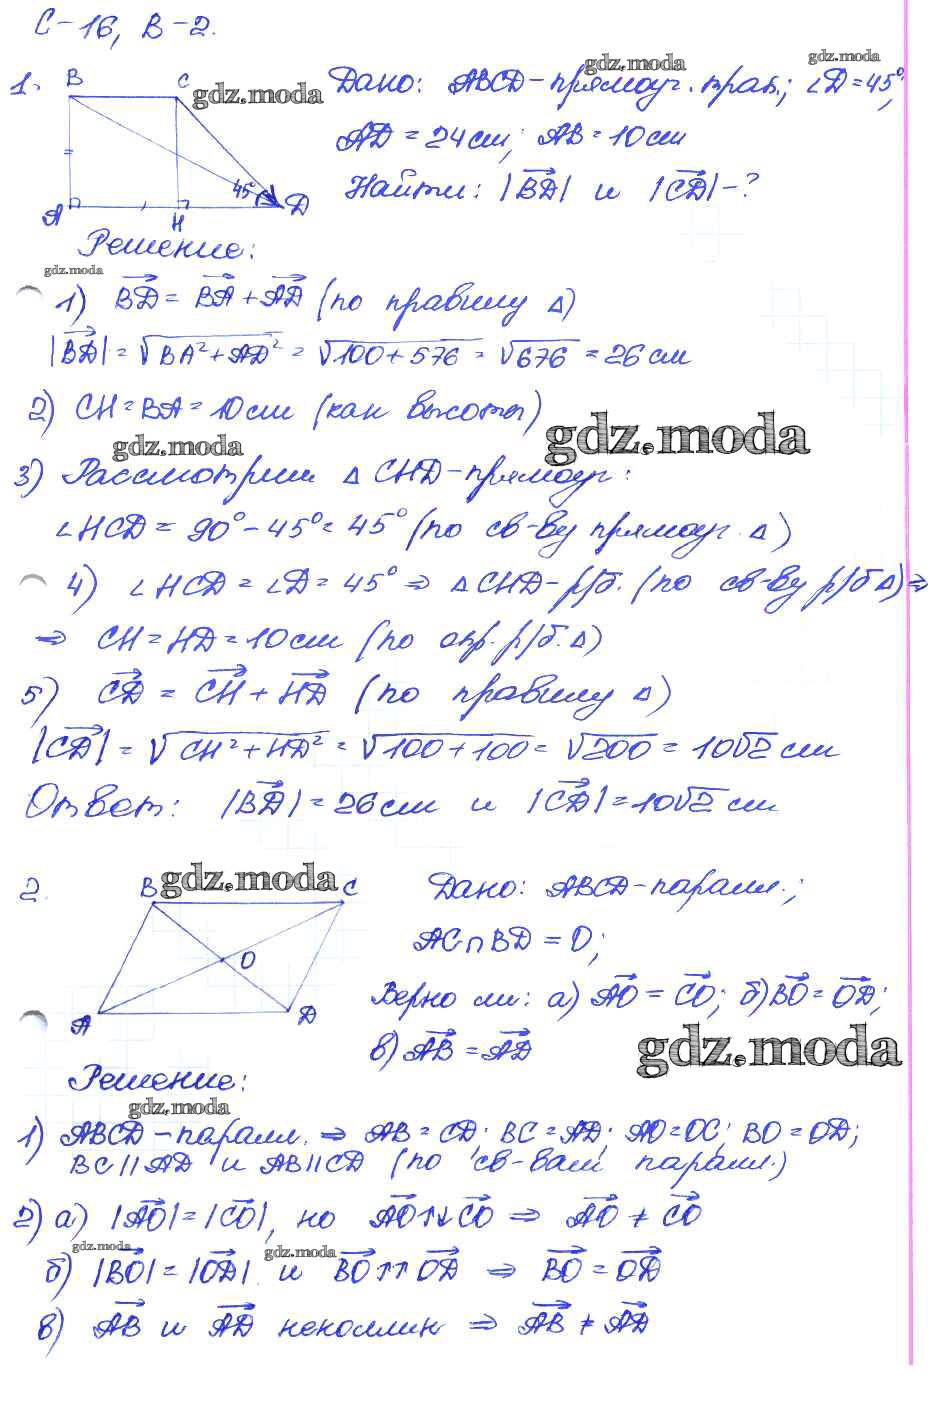 С-16, В-2.
1. B C gdz.moda Дано: ABCD-прямоуг. трап.; ∠D=45°, gdz.moda gdz.moda
AD = 24см; AB = 10см
45° A H D Найти: |BD| и |CD|-?
Решение:
gdz.moda
1) BD = BA + AD (по правилу Δ)
|BD| = √BA²+AD² = √100+576 = √676 = 26 см
2) CH = BA = 10 см (как высоты)
gdz.moda gdz.moda
3) Рассмотрим Δ CHD-прямоуг:
∠HCD = 90°-45°=45° (по св-ву прямоуг. Δ)
4) ∠HCD = ∠D = 45° ⇒ ΔCHD-р/б. (по св-ву р/б Δ) ⇒
⇒ CH = HD = 10см (по опр. р/б. Δ)
5) CD = CH + HD (по правилу Δ)
|CD| = √CH²+HD² = √100+100 = √200 = 10√2 см
Ответ: |BD| = 26 см и |CD| = 10√2 см
2. B gdz.moda C Дано: ABCD-паралл.;
AC∩BD = O;
O A D Верно ли: а) AO = CO; б) BO = OD;
в) AB = AD
gdz.moda
Решение:
gdz.moda
1) ABCD-паралл. ⇒ AB = CD; BC = AD; AO = OC; BO = OD;
BC||AD и AB||CD (по св-вам паралл.)
2) а) |AO| = |CO|, но AO↑↓CO ⇒ AO ≠ CO
gdz.moda gdz.moda
б) |BO| = |OD| и BO↑↑OD ⇒ BO = OD
в) AB и AD неколлин ⇒ AB ≠ AD